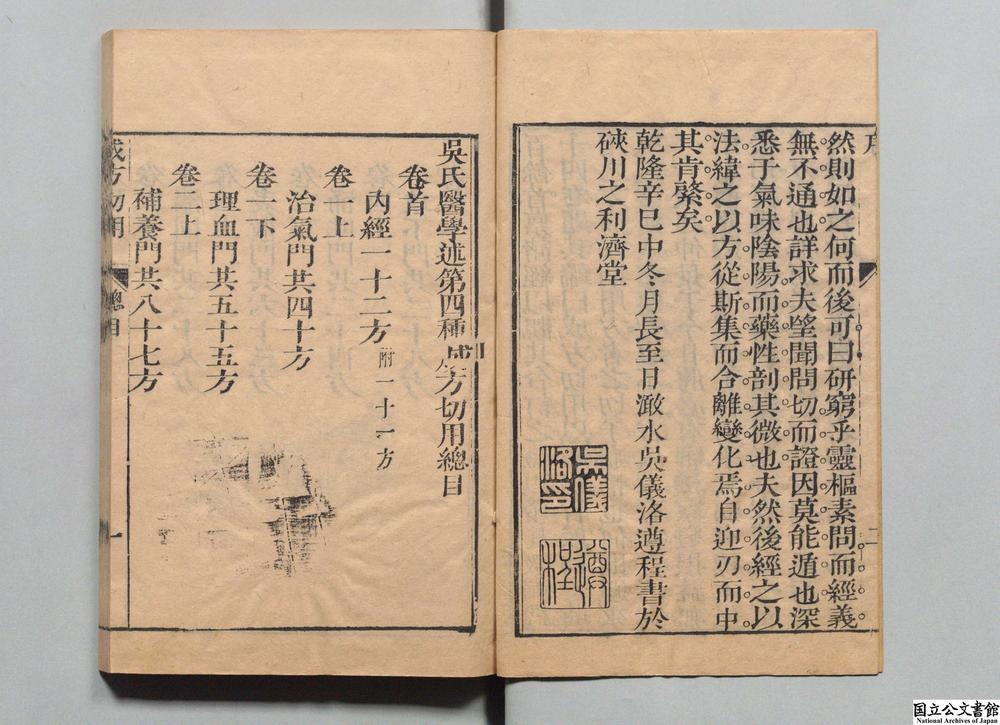 序
二
然則如之何而後可曰研窮乎靈樞素問而經義
無不通也詳求夫望聞問切而證因莫能遁也深
悉于氣味陰陽而藥性剖其微也夫然後經之以
法緯之以方從斯集而合離變化焉自迎刃而中
其肯綮矣
乾隆辛巳中冬月長至日澉水吳儀洛遵程書於
硤川之利濟堂
吳儀洛印
遵程
吳氏醫學述第四種成方切用總目
卷首
內經一十二方附一十一方
卷一上
治氣門共四十方
卷一下
理血門共五十五方
卷二上
補養門共八十七方
成方切用
總目
一
国立公文書館
National Archives of Japan